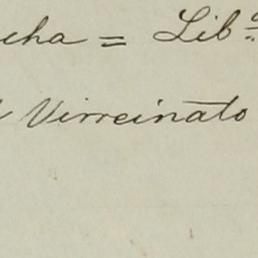 cha = Lib.º
Virreinato